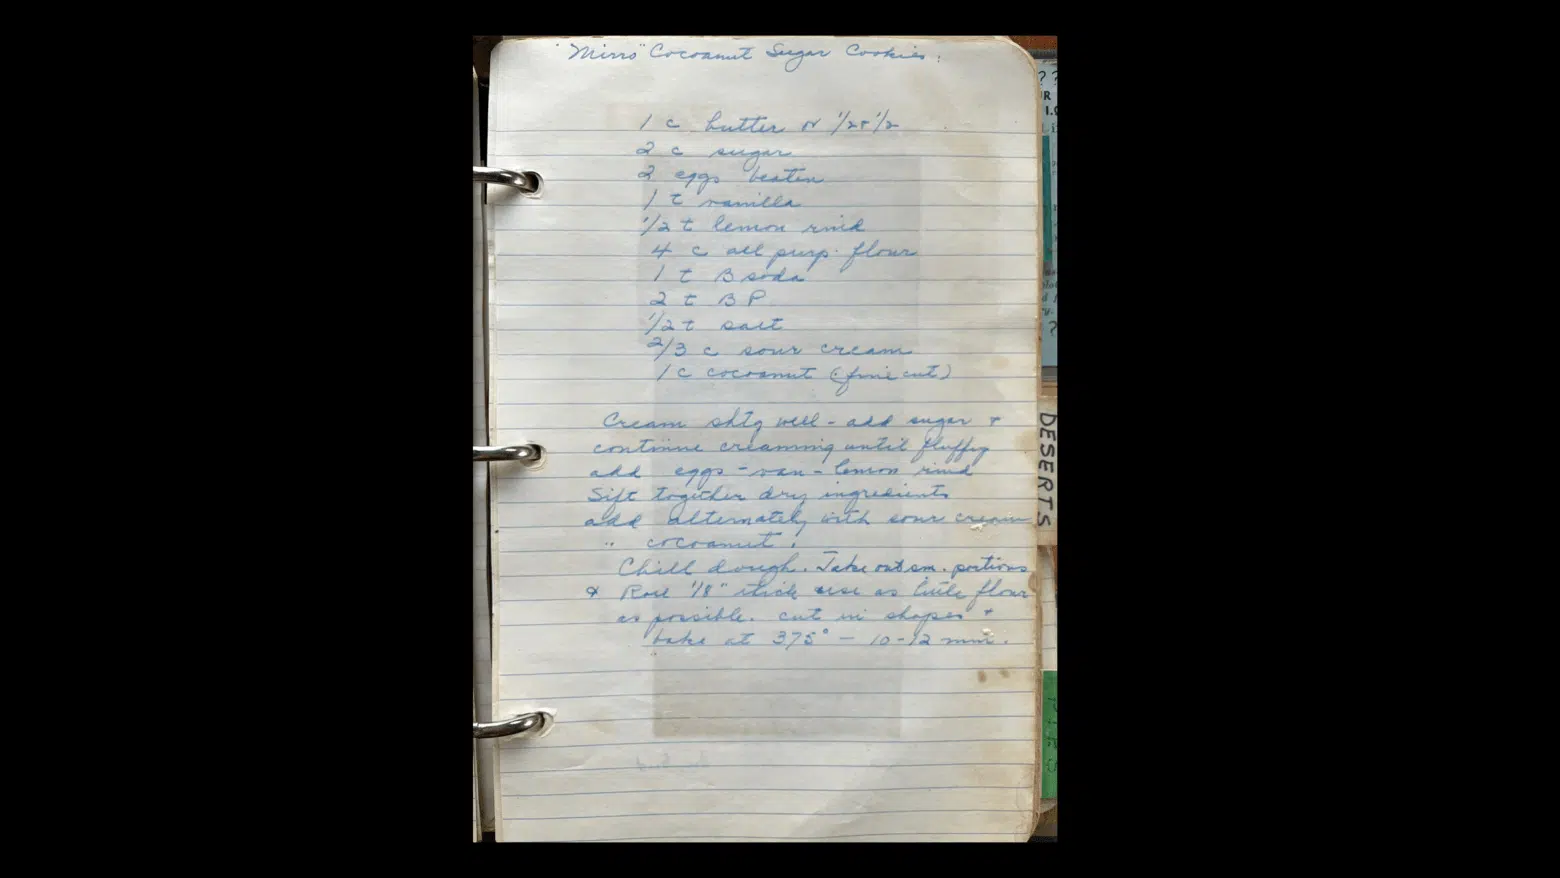 "Mirro" Cocoanut Sugar Cookies.
1 c butter or 1/2 + 1/2
2 c sugar
2 eggs beaten
1 t vanilla
1/2 t lemon rind
4 c all purp. flour
1 t B soda
2 t B P
1/2 t salt
2/3 c sour cream
1 c cocoanut (fine cut)
Cream shtg well - add sugar +
continue creaming until fluffy
add eggs - van - lemon rind
Sift together dry ingredients
add alternately with sour cream
" cocoanut.
Chill dough. Take out sm. portions
& Roll 1/8" thick use as little flour
as possible. cut in shapes +
bake at 375° - 10-12 min.
DESERTS